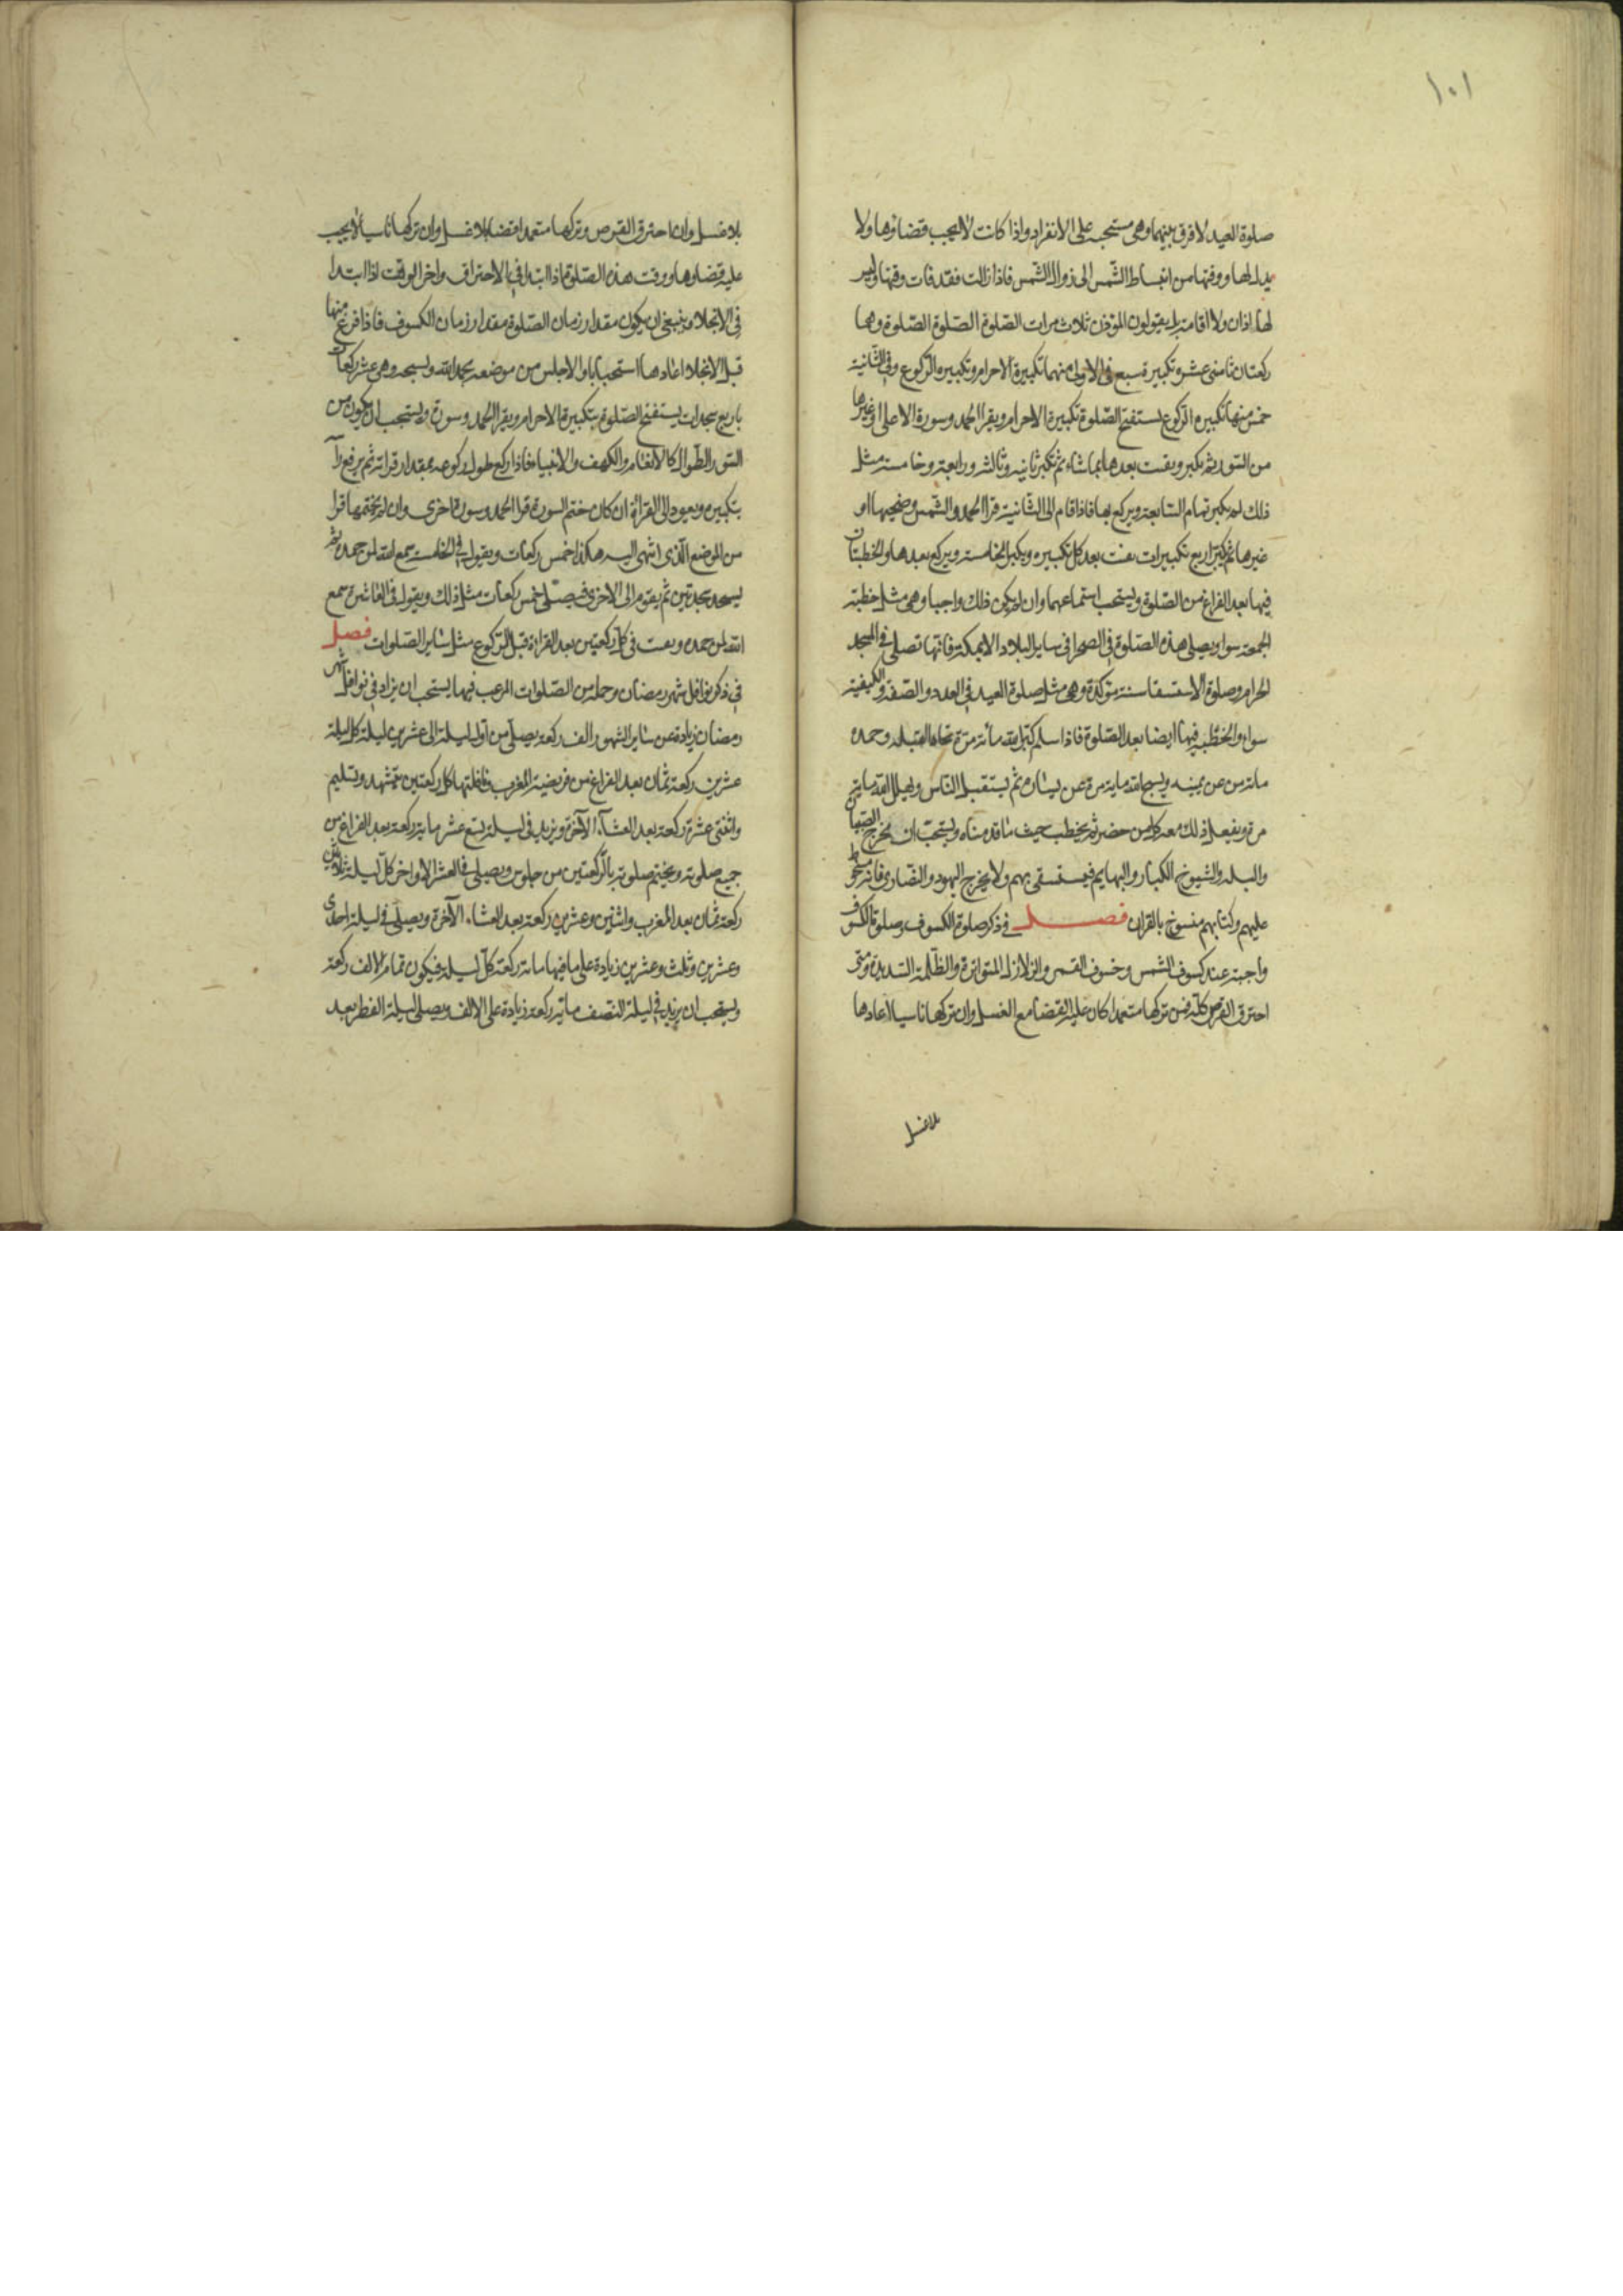 ١٠١
صلوة العيد لا فرق بينهما وهى مستحبة على الانفراد واذا كانت لا يجب قضاؤها ولا
بدل لها ووقتها من انبساط الشمس الى زوال الشمس فاذا زالت فقد فات وقتها وليس
لها اذان ولا اقامة بل يقول المؤذن ثلاث مرات الصلوة الصلوة الصلوة وهما
ركعتان باثنى عشر تكبيرة سبع فى الاولى منهما تكبيرة الاحرام وتكبيره الركوع وفى الثانية
خمس منها تكبيره الركوع يستفتح الصلوة بتكبيرة الاحرام ويقرا الحمد وسورة الاعلى او غيرها
من السور ثم يكبر ويقنت بعدها بما شاء ثم يكبر ثانيه وثالثه ورابعة وخامسة مثل
ذلك ثم يكبر تمام السابعة ويركع بها فاذا قام الى الثانية قرا الحمد والشمس وضحيها او
غيرها ثم يكبر اربع تكبيرات يقنت بعد كل تكبيره ويكبر الخامسة ويركع بعدها والخطبتان
فيها بعد الفراغ من الصلوة ويستحب استماعهما وان لم يكن ذلك واجبا وهى مثل خطبة
الجمعة سوا ويصلى هذه الصلوة فى الصحرا فى ساير البلاد الا بمكة فانها تصلى فى المسجد
الحرام وصلوة الاستسقا سنة مؤكدة وهى مثل صلوة العيد فى العدد والصفة والكيفية
سواء والخطبه فيها ايضا بعد الصلوة فاذا سلم كبر الله مائة مرة تجاه القبله وحمده
مائة مرة عن يمينه ويسبح الله ماية مرة عن يساره ثم يستقبل الناس ويهلل الله ماية
مرة ويفعل ذلك معه كل من حضر ثم يخطب حيث ما قدمناه ويستحب ان يخرج الصبيان
والبله والشيوخ الكبار والبهايم فيستسقى بهم ولا يخرج اليهود والنصارى فانهم مسخوط
عليهم وكتابهم منسوخ بالقران فصل فى ذكر صلوة الكسوف وصلوة الكسوف
واجبة عند كسوف الشمس وخسوف القمر والزلازل المتواترة والظلمة الشديدة ومتى
احترق القرص كله فمن تركها متعمدا كان عليه القضا مع الغسل وان تركها ناسيا اعادها
بلا غسل
بلا غسل وان ما احترق القرص وتركها متعمدا قضا بلا غسل وان تركها ناسيا لا يجب
عليه قضاوها ووقت هذه الصلوة اذا ابتدا فى الاحتراق واخر الوقت اذا ابتدا
فى الانجلاء وينبغى ان يكون مقدار زمان الصلوة مقدار زمان الكسوف فاذا فرغ منها
قبل الانجلاء اعادها استحبابا والا جلس من موضعه يحمد الله ويسبحه وهى عشر ركعات
باربع سجدات يستفتح الصلوة بتكبيرة الاحرام ويقرا الحمد وسورة ويستحب ان يكون من
السور الطوال كالانعام والكهف والانبياء فاذا ركع طول ركوعه بمقدار قراته ثم يرفع راسه
بتكبيره ويعود الى القراءة ان كان ختم السورة قرا الحمد وسورة اخرى وان لم يختمها قرا
من الموضع الذى انتهى اليه هكذا خمس ركعات ويقول فى الخامسة سمع الله لمن حمده ثم
يسجد سجدتين ثم يقوم الى الاخرى فيصلى خمس ركعات مثل ذلك ويقول فى العاشرة سمع
الله لمن حمده ويقنت فى كل ركعتين بعد القراءة قبل الركوع مثل ساير الصلوات فصل
فى ذكر نوافل شهر رمضان وجملة من الصلوات المرغب فيها يستحب ان يزاد فى نوافل شهر
رمضان زيادة عن ساير الشهور الف ركعة يصلى من اول ليلة الى عشرين ليلة كل ليلة
عشرين ركعة ثمان بعد الفراغ من فريضة المغرب ونافلتها كل ركعتين بتشهد وتسليم
واثنتى عشرة ركعة بعد العشاء الآخرة ويزيد فى ليلة تسع عشر ماية ركعة بعد الفراغ من
جميع صلوته ويختم صلوته بالركعتين من جلوس ويصلى فى العشر الاواخر كل ليلة ثلاثين
ركعة ثمان بعد المغرب واثنين وعشرين ركعة بعد العشاء الآخرة ويصلى فى ليلة احدى
وعشرين وثلث وعشرين زيادة على ما فيها مائة ركعة كل ليلة فيكون تمام الالف ركعة
ويستحب ان يزيد فى ليلة النصف ماية ركعة زيادة على الالف ويصلى ليلة الفطر بعد